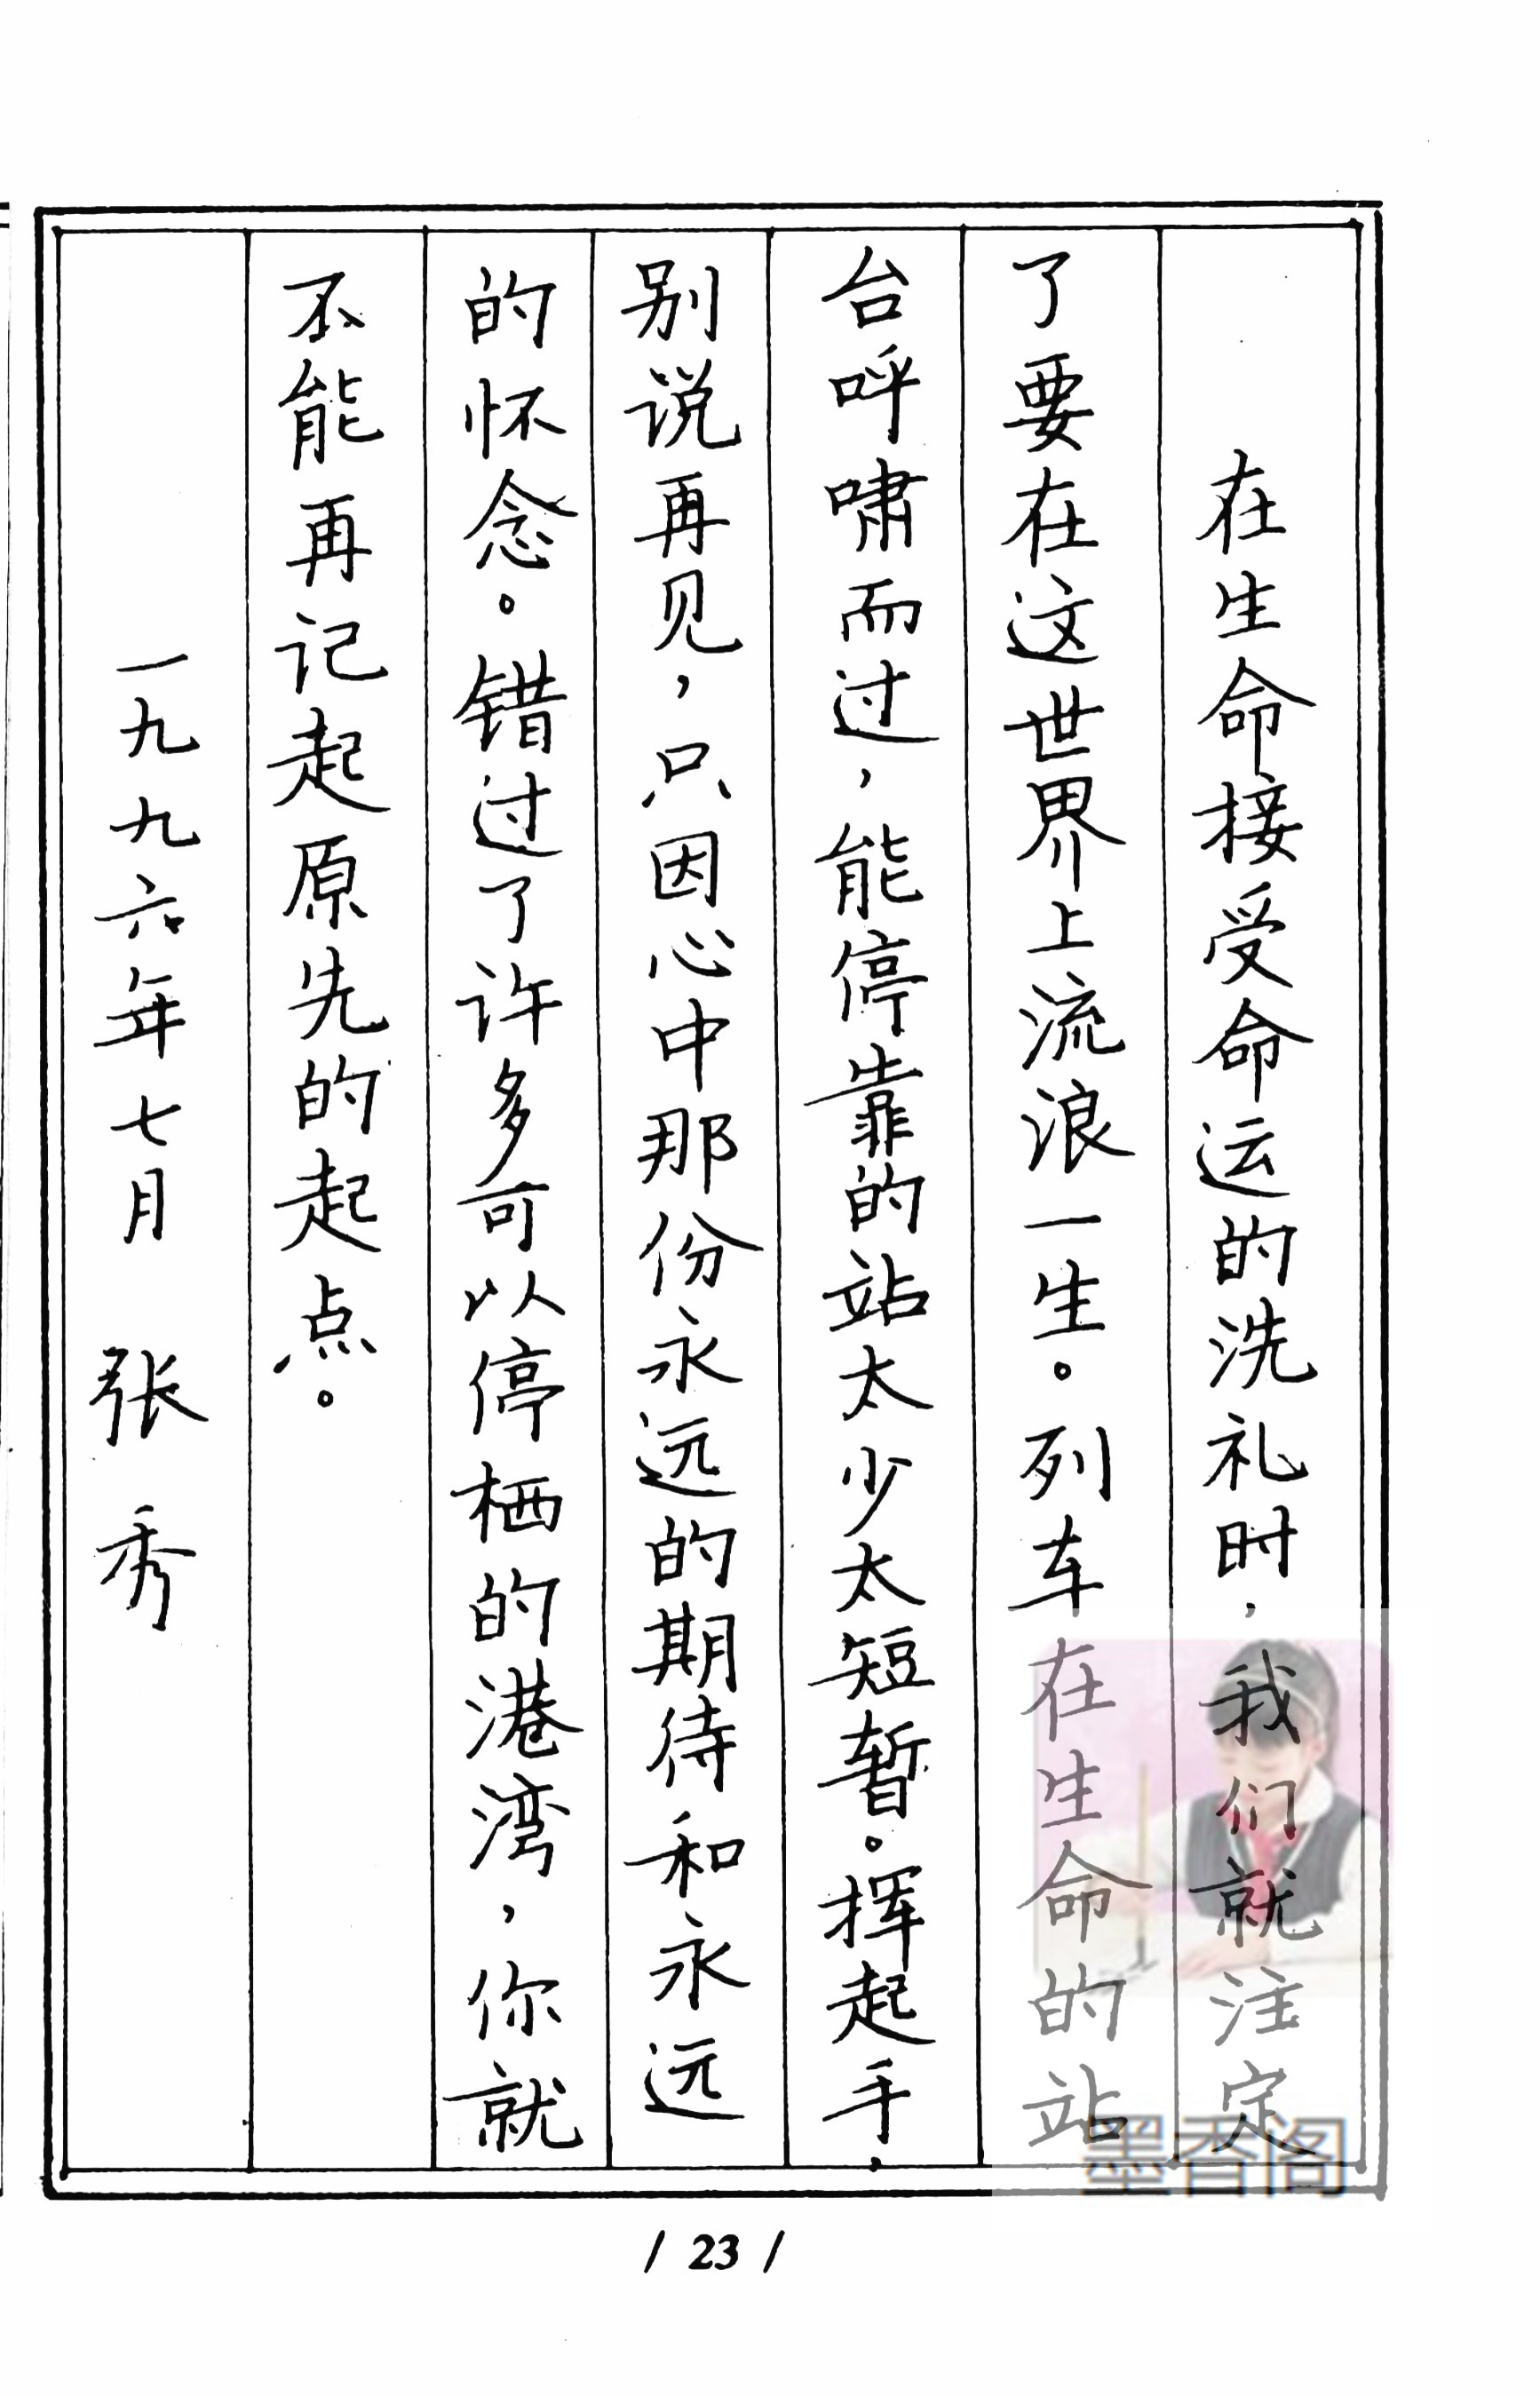 在生命接受命运的洗礼时，我们就注定
了要在这世界上流浪一生。列车在生命的站
台呼啸而过，能停靠的站太少太短暂。挥起手，
别说再见，只因心中那份永远的期待和永远
的怀念。错过了许多可以停栖的港湾，你就
不能再记起原先的起点。
一九九六年七月 张秀
/ 23 /
墨香阁